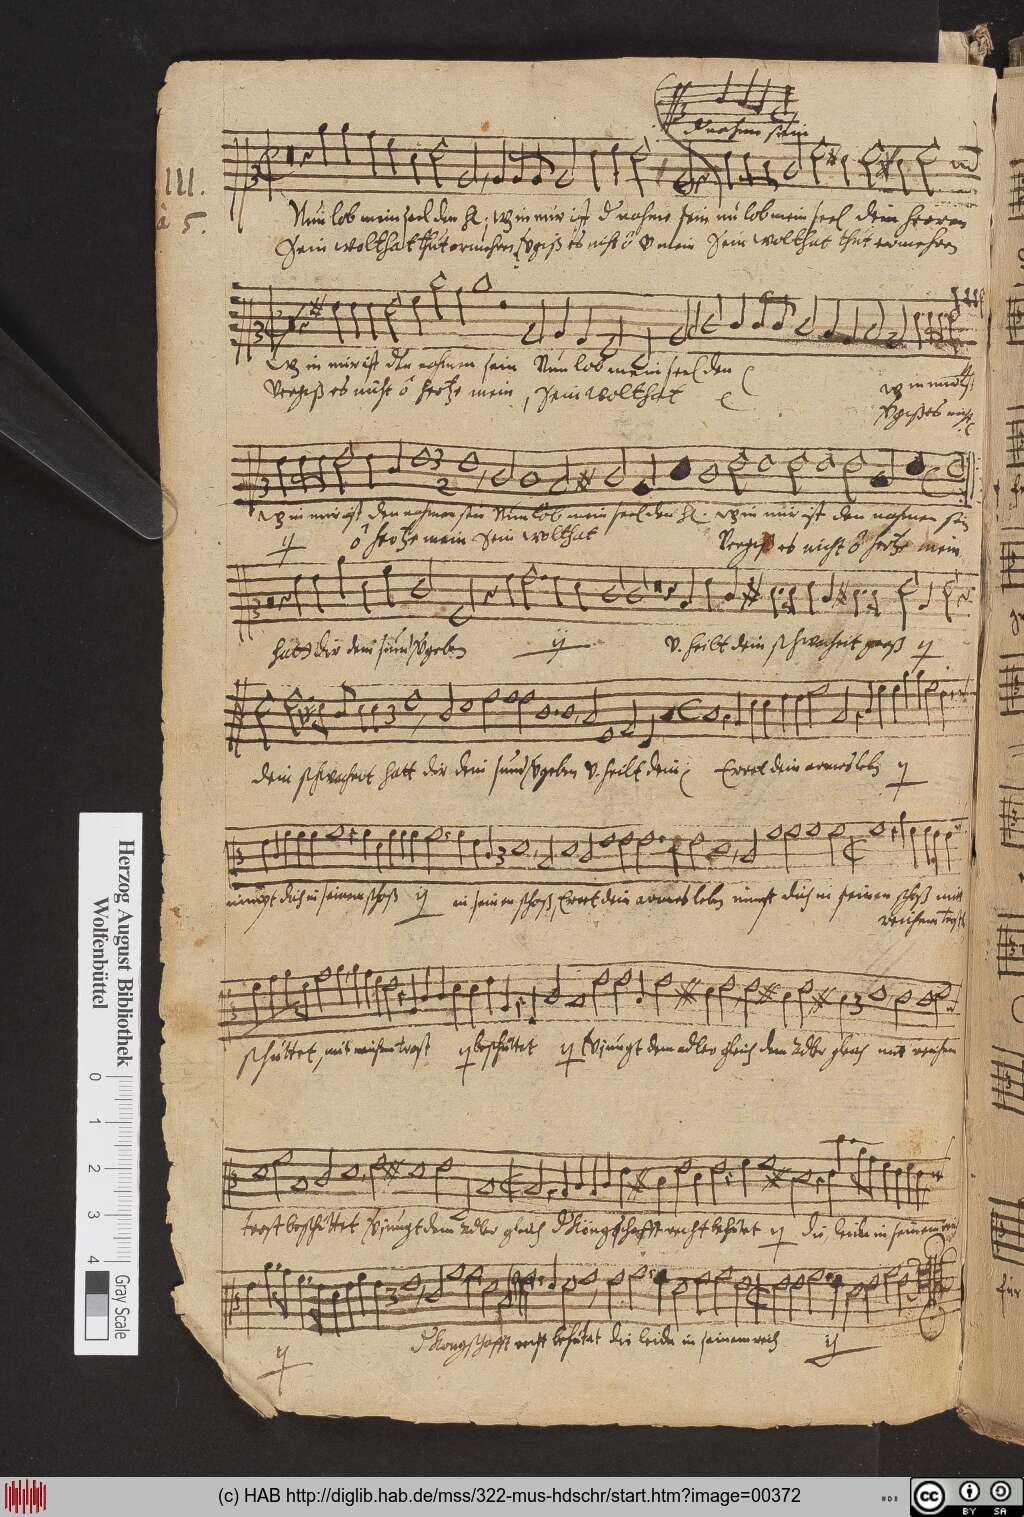 d nahme sein
III.
à 5.
Nun lob mein seel den H: wz in mir ist d nahme sein nu lob mein seel dein herren
Sein wolthat thut er mehren Vgiß es nicht ô mein Sein wolthat thut er mehren
wz in mir ist den nahmen sein Nun lob mein seel den
Vergiß es nicht ô hertze mein, Sein wolthat
wz in mir ist
Vgiß es nicht
wz in mir ist den nahmen sein Nun lob mein seel den H: wz in mir ist den nahmen sein
ij ô hertze mein Sein wolthat Vergiß es nicht ô hertze mein
hatt dir dein sund Vgeben ij v. heilt dein schwacheit groß ij
dein schwacheit hatt dir dein sund Vgeben v. heilt dein Errett dein armes leben ij
nimpt dich in seinen schoß ij in seinen schoß, Errett dein armes leben nimpt dich in seinen schoß mitt
reichem trost
schüttet, mit reichem trost ij beschüttet ij Vjungt dem adler gleich dem Adler gleich mit reichem
trost beschüttet Vjungt dem Adler gleich d König schafft recht behütet ij die leiden in seinem reich
ij d König schafft recht behütet die leiden in seinem reich ij
Herzog August Bibliothek
Wolfenbüttel
0 1 2 3 4
Gray Scale
(c) HAB http://diglib.hab.de/mss/322-mus-hdschr/start.htm?image=00372
cc BY SA